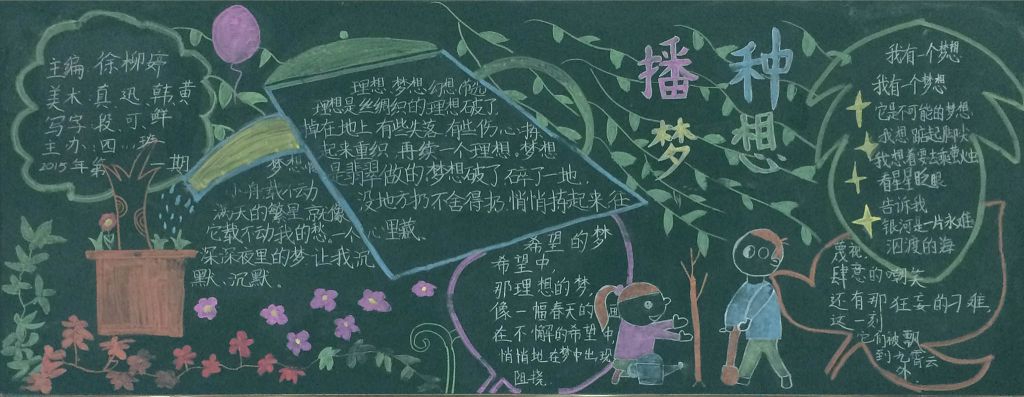 主编 徐柳婷
美术 真 迅 韩 黄
写字 段 可 鲜
主办 四 班
2015年第一期
播种
梦想
理想,梦想,幻想,
理想是丝绸织的理想破了
掉在地上,有些失落,有些伤心,捧
起来重织,再续一个理想。梦想
是翡翠做的梦想破了碎了一地.
没地方扔不舍得扔,悄悄捧起来,往
心里藏。
梦想
小舟载不动
满天的繁星,就像
它载不动我的愁。一个
深深夜里的梦,让我沉
默、沉默。
希望的梦
希望中,
那理想的梦
像一幅春天的画
在不懈的希望中,
悄悄地在梦中出现
阻挠.
我有一个梦想
我有一个梦想
它是不可能的梦想
我想踮起脚尖
我想看
看星星眨眼
告诉我
银河是一片永难
泅渡的海
蔑视
肆意的嘲笑
还有那狂妄的刁难,
这一刻
它们被飘
到九霄云
外.